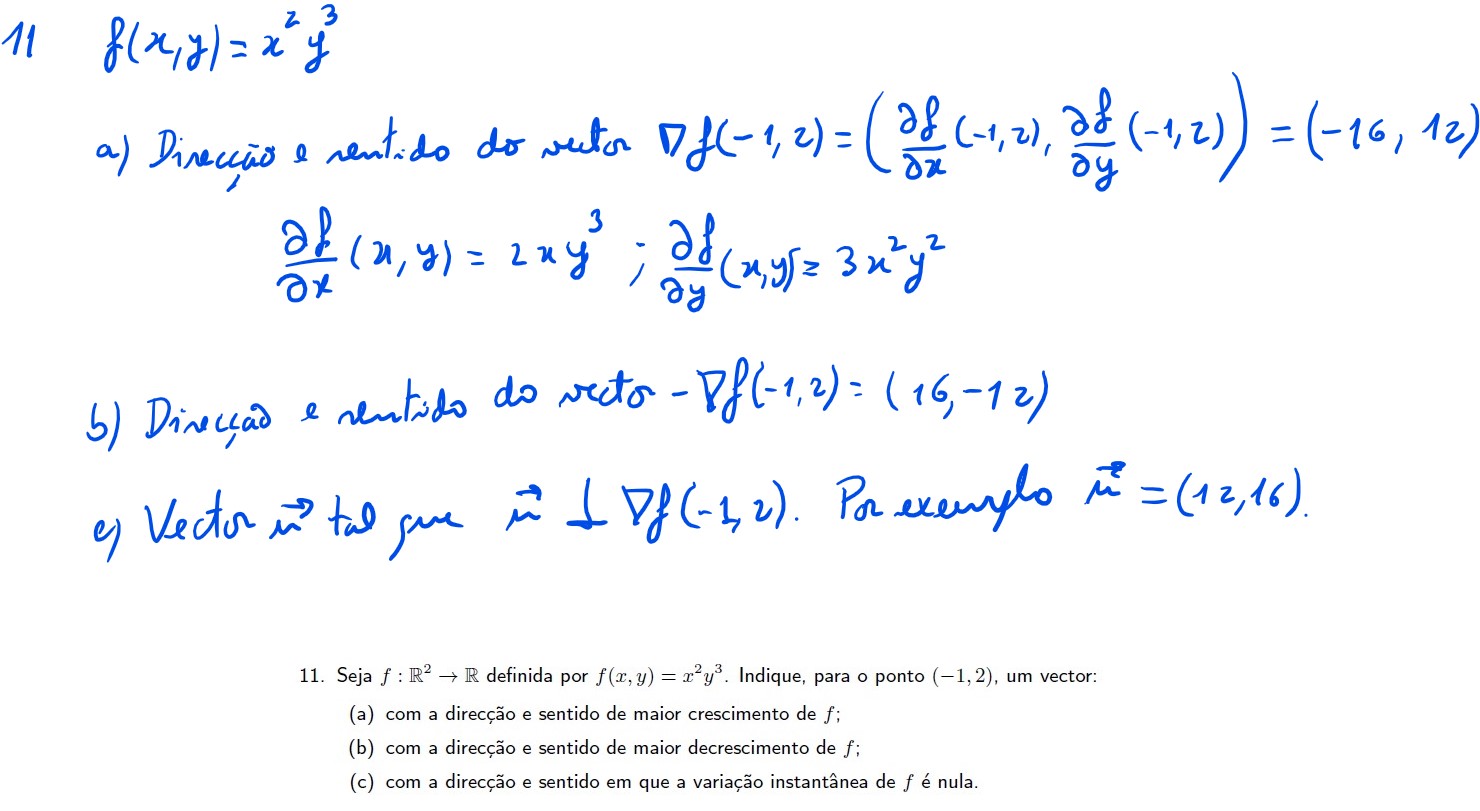 11 f(x,y) = x² y³
a) Direcção e sentido do vector ∇f(-1,2) = (∂f/∂x (-1,2), ∂f/∂y (-1,2)) = (-16, 12)
∂f/∂x (x,y) = 2xy³ ; ∂f/∂y (x,y) = 3x²y²
b) Direcção e sentido do vector -∇f(-1,2) = (16,-12)
c) Vector u⃗ tal que u⃗ ⊥ ∇f(-1,2). Por exemplo u⃗ = (12,16).
11. Seja f : ℝ² → ℝ definida por f(x, y) = x²y³. Indique, para o ponto (−1, 2), um vector:
(a) com a direcção e sentido de maior crescimento de f;
(b) com a direcção e sentido de maior decrescimento de f;
(c) com a direcção e sentido em que a variação instantânea de f é nula.